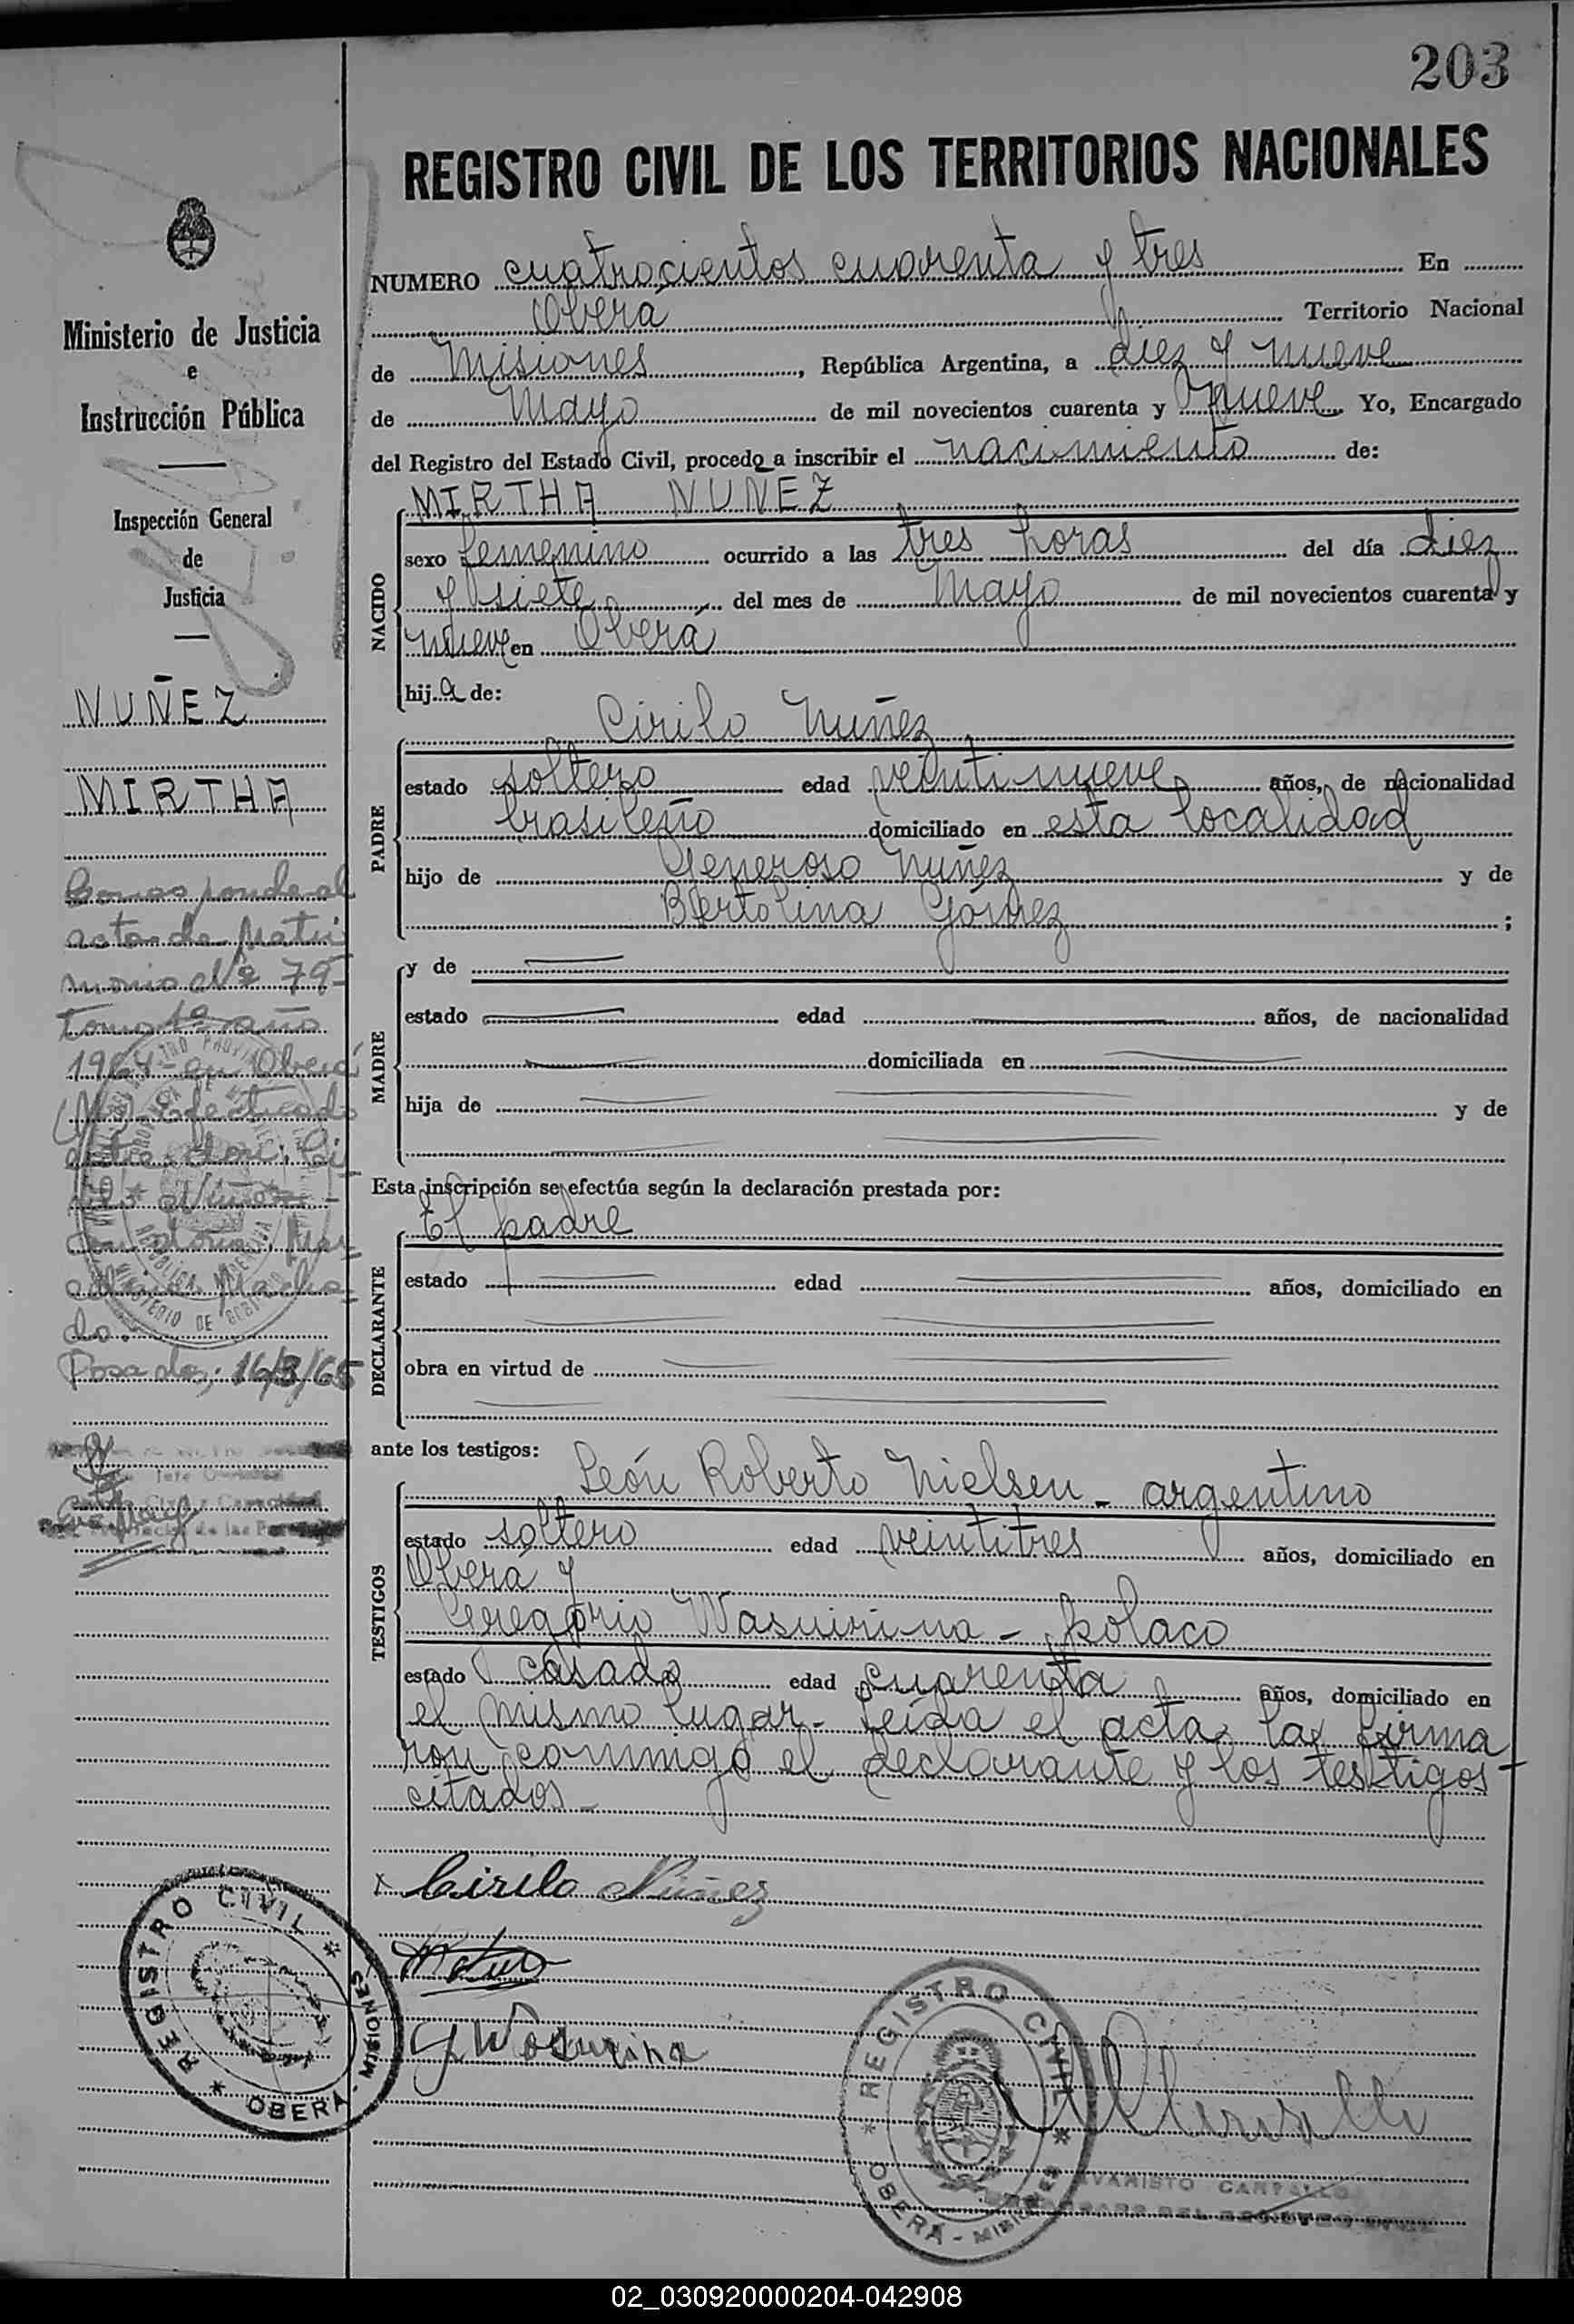 203
REGISTRO CIVIL DE LOS TERRITORIOS NACIONALES
NUMERO cuatrocientos cuarenta y tres En
Oberá Territorio Nacional
de Misiones, República Argentina, a diez y nueve
de Mayo de mil novecientos cuarenta y nueve Yo, Encargado
del Registro del Estado Civil, procedo a inscribir el nacimiento de:
NACIDO
MIRTHA NUNEZ
sexo femenino ocurrido a las tres horas del día diez
y siete del mes de Mayo de mil novecientos cuarenta y
nueve en Oberá
hija de:
PADRE
Cirilo Nuñez
estado soltero edad veintinueve años, de nacionalidad
brasileño domiciliado en esta localidad
hijo de Generoso Nuñez y de
Bertolina Gómez ;
MADRE
y de
estado edad años, de nacionalidad
domiciliada en
hija de y de
Esta inscripción se efectúa según la declaración prestada por:
DECLARANTE
El padre
estado edad años, domiciliado en
obra en virtud de
ante los testigos:
TESTIGOS
León Roberto Nielsen - argentino
estado soltero edad veintitres años, domiciliado en
Oberá y
Gregorio Wasuirina - polaco
estado casado edad cuarenta años, domiciliado en
el mismo lugar - Leída el acta, la firma
ron conmigo el declarante y los testigos
citados -
x Cirilo Nuñez
G Wasurina
REGISTRO CIVIL
OBERÁ - MISIONES
EVARISTO
Ministerio de Justicia
e
Instrucción Pública
Inspección General
de
Justicia
NUÑEZ
MIRTHA
Corresponde al
acta de Matri
monio Nº 79-
Tomo 1º año
1964 - en Oberá
(M) Efectuado
entre don: Ci
rilo Nuñez -
con doña, Mar
Macha
do.
Posadas, 16/3/65
REGISTRO CIVIL
OBERÁ - MISIONES
02_030920000204-042908